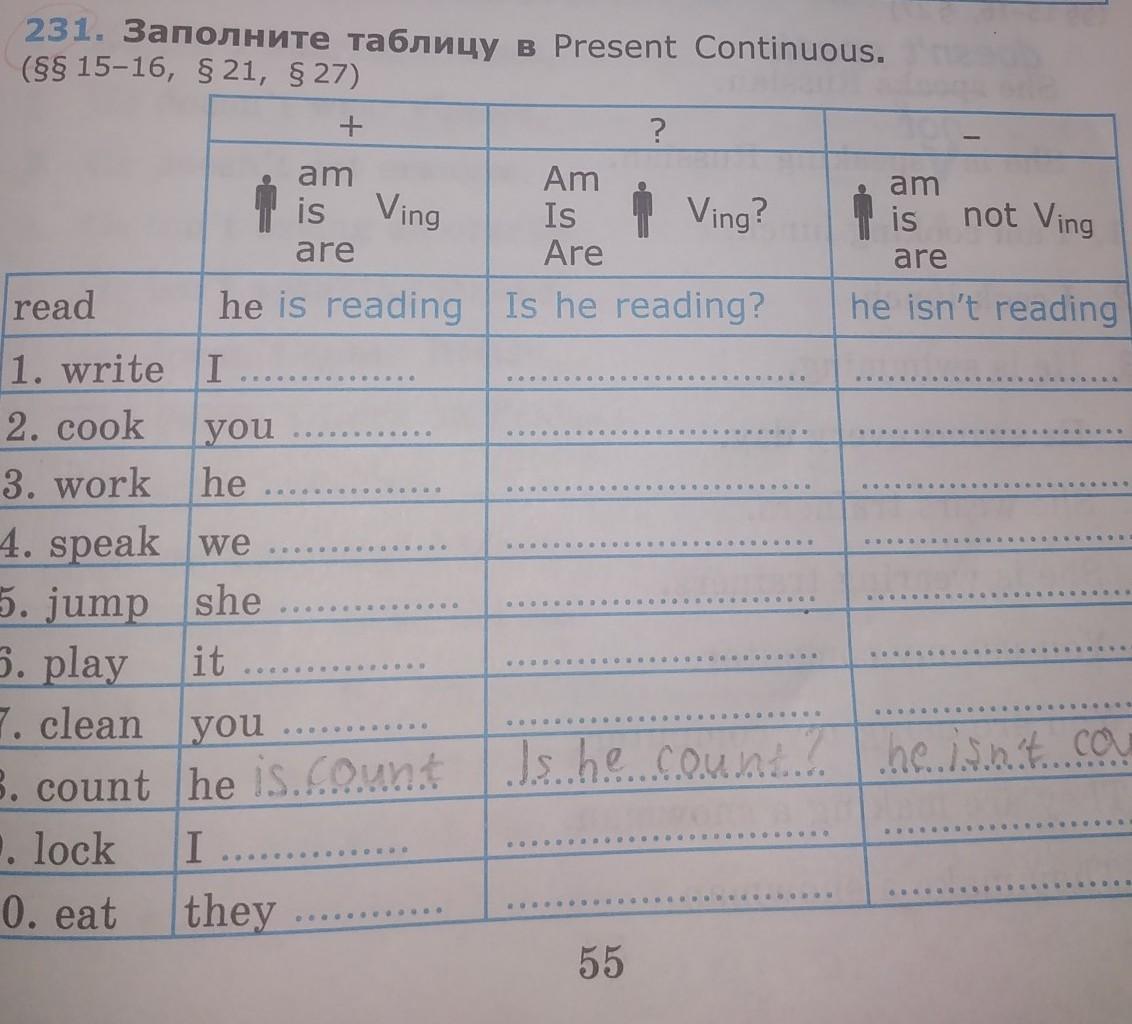 231. Заполните таблицу в Present Continuous.
(§§ 15–16, § 21, § 27)
+ ? –
am Am am
is Ving Is Ving? is not Ving
are Are are
read he is reading Is he reading? he isn't reading
1. write I ............... ............................ ............................
2. cook you ............ ............................ ............................
3. work he ............... ............................ ............................
4. speak we ............... ............................ ............................
5. jump she ............... ............................ ............................
6. play it ............... ............................ ............................
7. clean you ............ ............................ ............................
8. count he is count Is he count? he isn't cou
. lock I ............... ............................ ............................
0. eat they ............ ............................ ............................
55